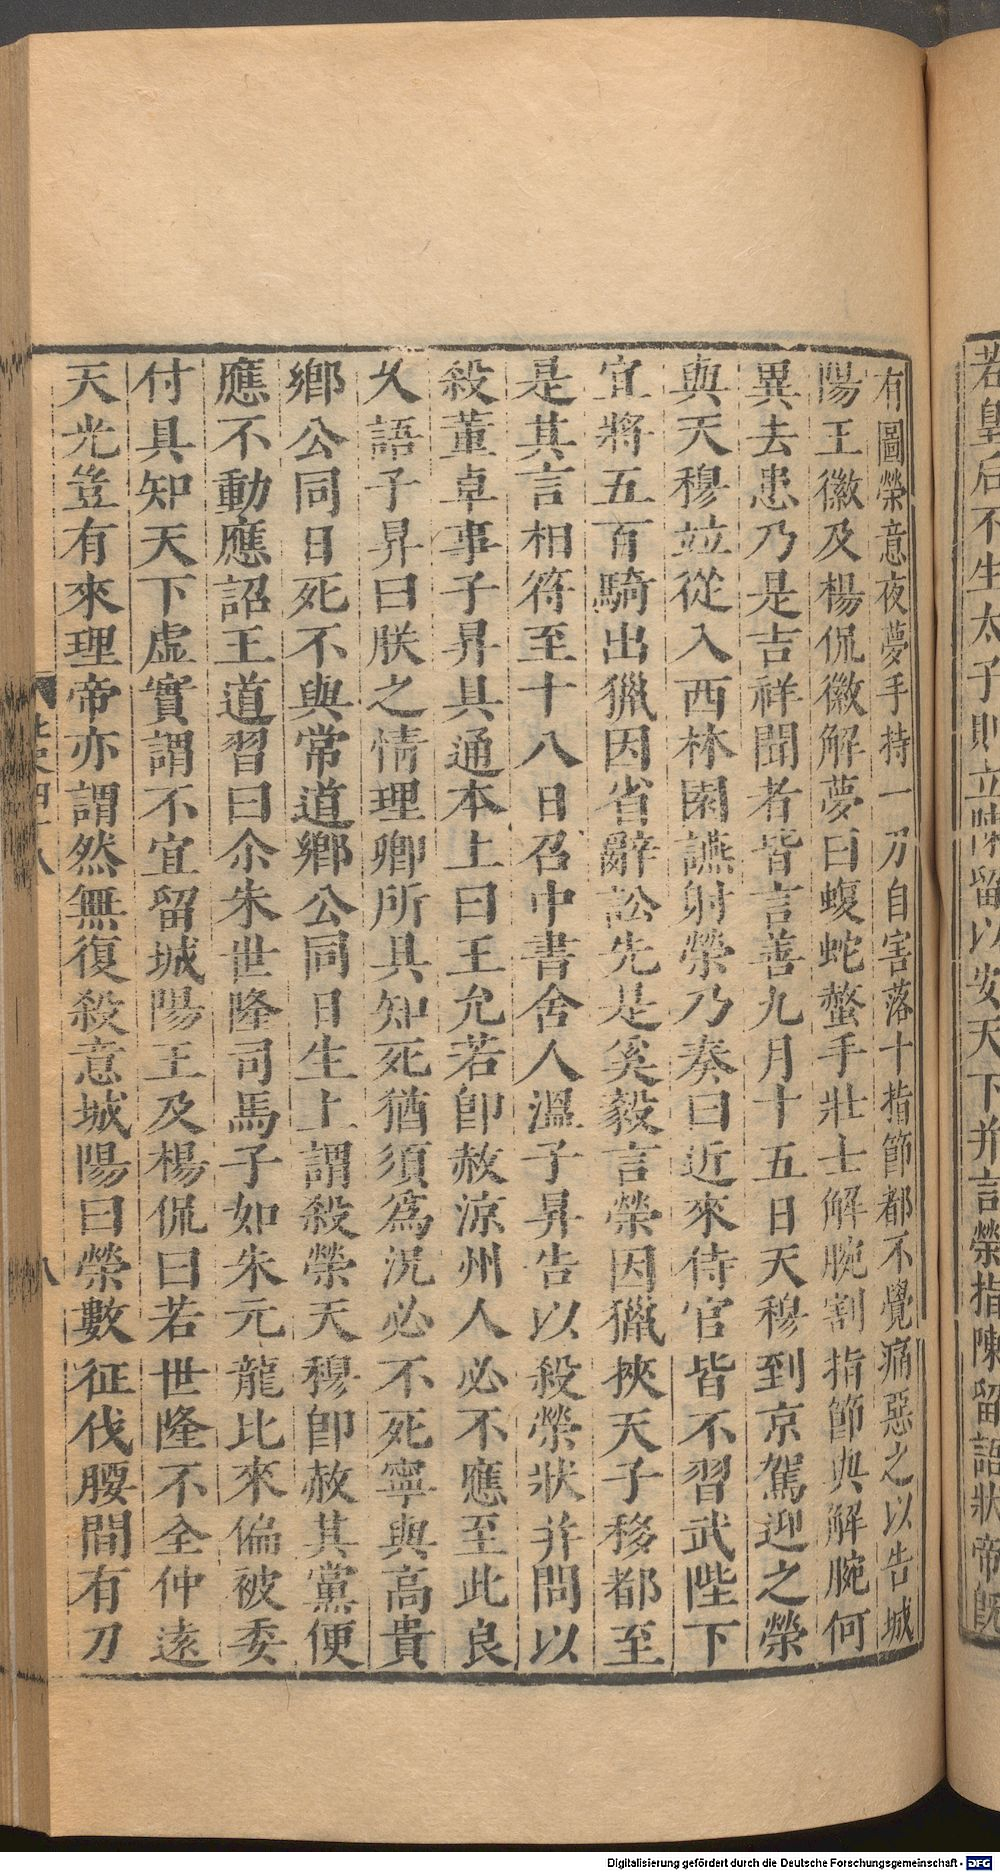 若皇后不生太子則立陳留以安天下并言榮指陳留語狀帝既
有圖榮意夜夢手持一刀自害落十指節都不覺痛惡之以告城
陽王徽及楊侃徽解夢曰蝮蛇螫手壯士解腕割指節與解腕何
異去患乃是吉祥聞者皆言善九月十五日天穆到京駕迎之榮
與天穆竝從入西林園讌射榮乃奏曰近來侍官皆不習武陛下
宜將五百騎出獵因省辭訟先是奚毅言榮因獵挾天子移都至
是其言相符至十八日召中書舍人溫子昇告以殺榮狀并問以
殺董卓事子昇具通本上曰王允若卽赦涼州人必不應至此良
久語子昇曰朕之情理卿所具知死猶須爲況必不死寧與高貴
鄉公同日死不與常道鄉公同日生上謂殺榮天穆卽赦其黨便
應不動應詔王道習曰尒朱世隆司馬子如朱元龍比來偏被委
付具知天下虛實謂不宜留城陽王及楊侃曰若世隆不全仲遠
天光豈有來理帝亦謂然無復殺意城陽曰榮數征伐腰間有刀
北史四十八
八
Digitalisierung gefördert durch die Deutsche Forschungsgemeinschaft - DFG